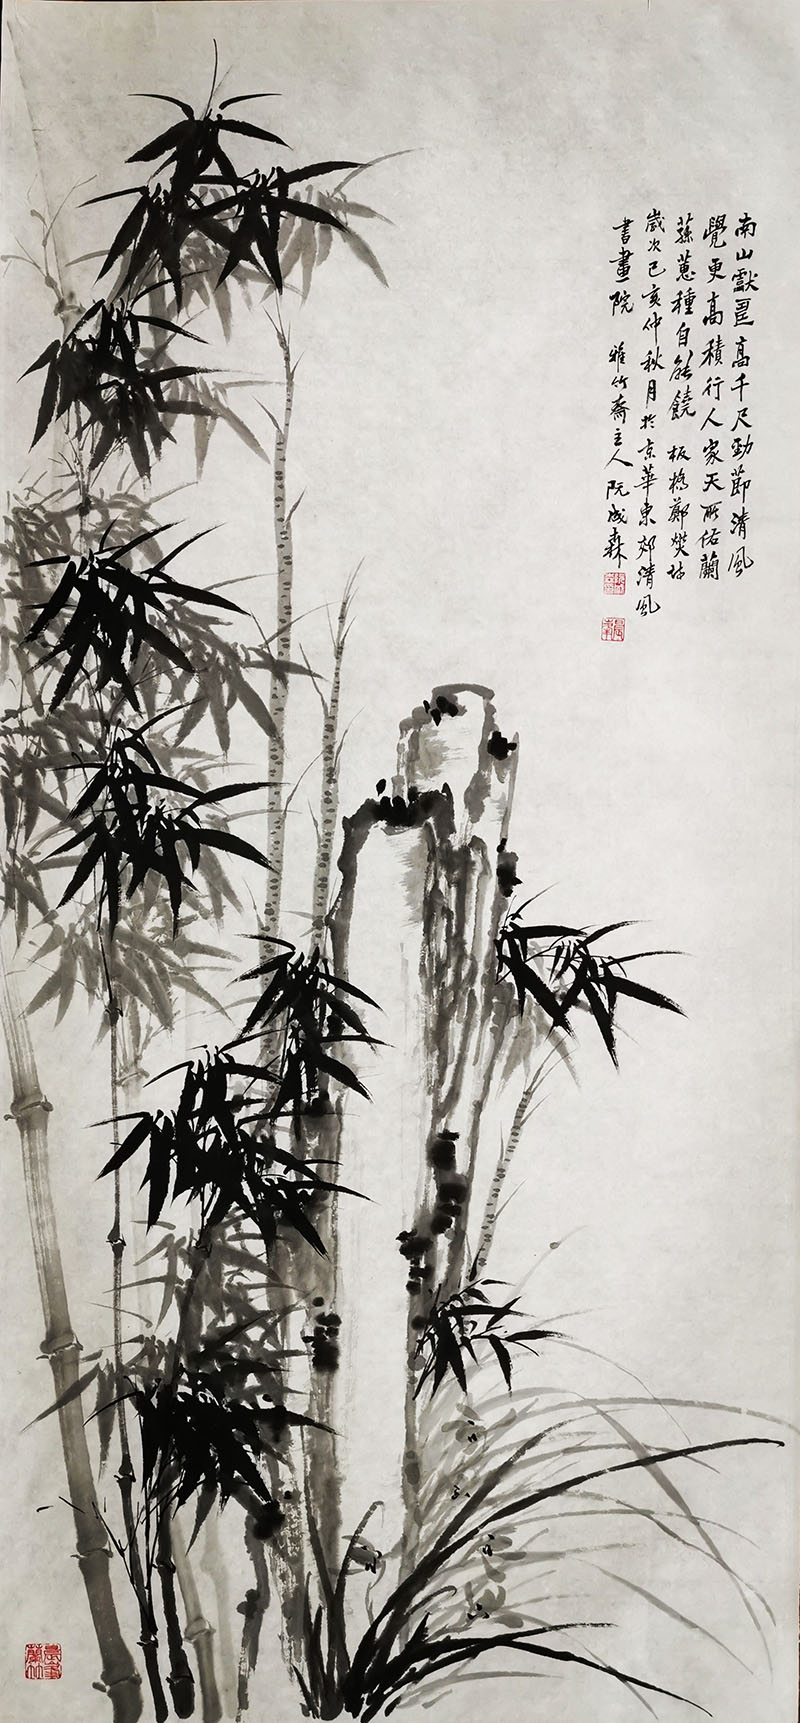 南山獻壽高千尺勁節清風
覺更高積行人家天所佑蘭
蓀蕙種自能饒 板橋鄭燮詩
歲次己亥仲秋月於京華東郊清風
書畫院 雅竹齋主人阮成森